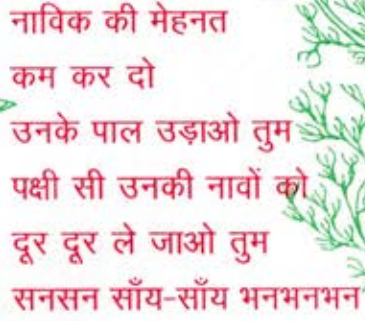 नाविक की मेहनत
कम कर दो
उनके पाल उड़ाओ तुम
पक्षी सी उनकी नावों को
दूर दूर ले जाओ तुम
सनसन साँय-साँय भनभनभन